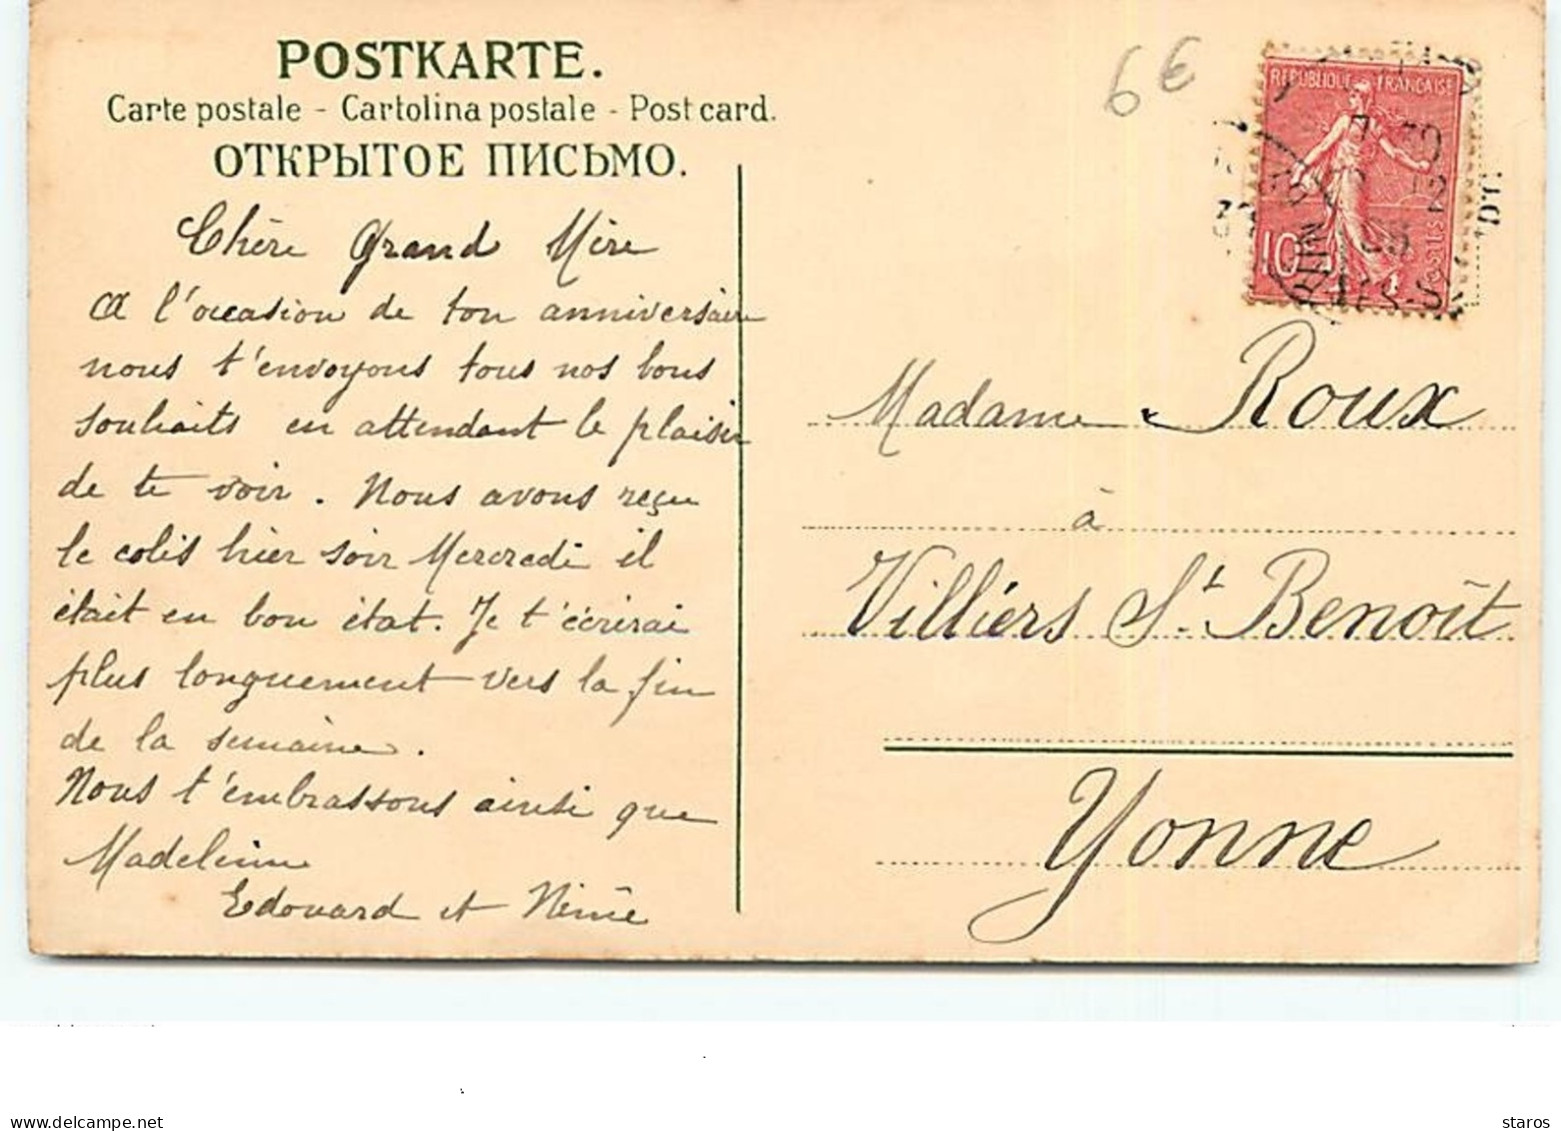 POSTKARTE.
Carte postale - Cartolina postale - Post card.
ОТКРЫТОЕ ПИСЬМО.
6€
REPUBLIQUE FRANÇAISE
10
POSTES
Chère Grand Mère
A l'occasion de ton anniversaire
nous t'envoyons tous nos bons
souhaits en attendant le plaisir
de te voir. Nous avons reçu
le colis hier soir Mercredi il
était en bon état. Je t'écrirai
plus longuement vers la fin
de la semaine.
Nous t'embrassons ainsi que
Madeleine
Edouard et
Madame Roux
à
Villiers St. Benoît
Yonne
delcampe.net
staros